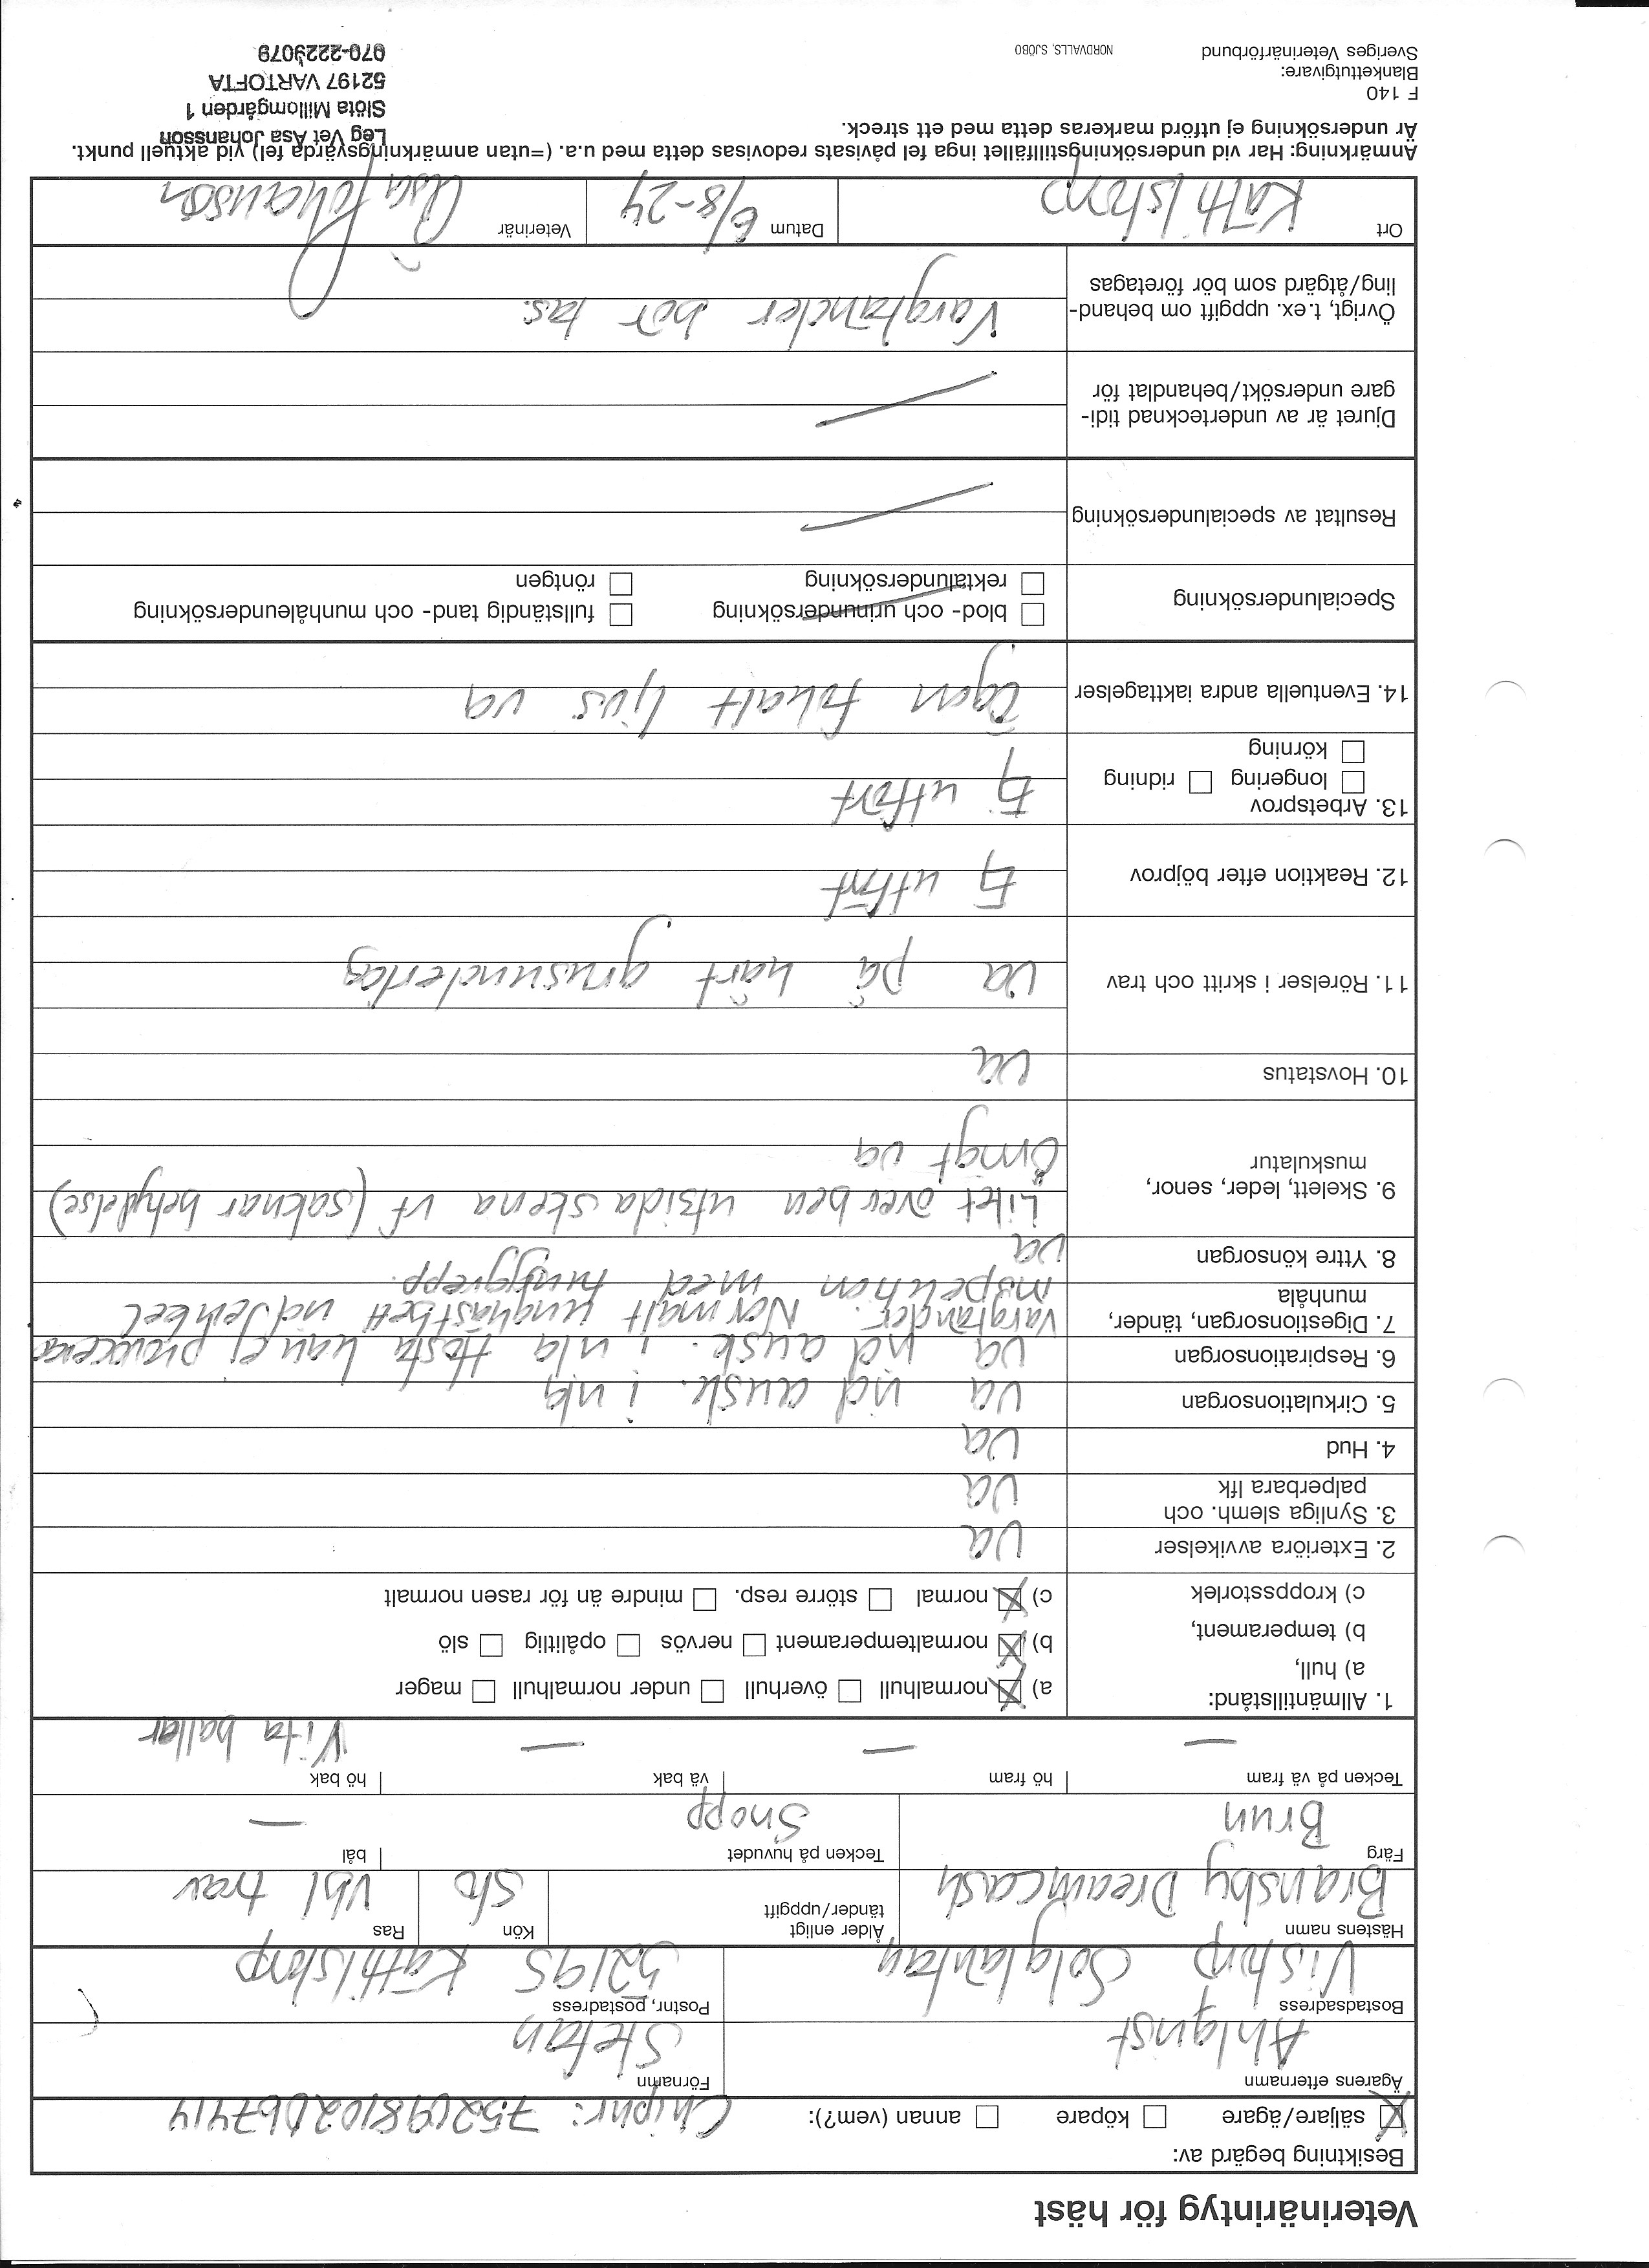 Veterinärintyg för häst
Besiktning begärd av:
säljare/ägare köpare annan (vem?): Chipnr:
Ägarens efternamn Förnamn
Ahlqvist Stefan
Bostadsadress Postnr, postadress
Vistorp Solgläntan 52195 Kättilstorp
Hästens namn Ålder enligt tänder/uppgift Kön Ras
Bransby Dreamcash Sto Vbl trav
Färg Tecken på huvudet bål
Brun Snopp —
Tecken på vä fram hö fram vä bak hö bak
— — — Vita ballar
1. Allmäntillstånd:
a) hull, a) normalhull överhull under normalhull mager
b) temperament, b) normaltemperament nervös opålitlig slö
c) kroppsstorlek c) normal större resp. mindre än för rasen normalt
2. Exteriöra avvikelser ua
3. Synliga slemh. och
palperbara lfk ua
4. Hud ua
5. Cirkulationsorgan ua vid ausk. i vila
6. Respirationsorgan ua vid ausk. i vila Hosta kan ej provoceras
7. Digestionsorgan, tänder, Vargtänder. Normalt unghästbett vid enkel
munhåla inspektion med tunggrepp.
8. Yttre könsorgan ua
9. Skelett, leder, senor, Litet överben utsida skena vf (saknar betydelse)
muskulatur Övrigt ua
10. Hovstatus ua
11. Rörelser i skritt och trav ua på hårt grusunderlag
12. Reaktion efter böjprov Ej utfört
13. Arbetsprov
longering ridning Ej utfört
körning
14. Eventuella andra iakttagelser Ögon fokalt ljus ua
Specialundersökning blod- och urinundersökning fullständig tand- och munhåleundersökning
rektalundersökning röntgen
Resultat av specialundersökning
Djuret är av undertecknad tidi-
gare undersökt/behandlat för
Övrigt, t.ex. uppgift om behand- Vargtänder bör tas.
ling/åtgärd som bör företagas
Ort Datum Veterinär
Kättilstorp 6/8-24 Åsa Johansson
Anmärkning: Har vid undersökningstillfället inga fel påvisats redovisas detta med u.a. (=utan anmärkningsvärda fel) vid aktuell punkt.
Är undersökning ej utförd markeras detta med ett streck.
Leg Vet Åsa Johansson
Slöta Millomgården 1
52197 VARTOFTA
070-2229079
F 140
Blankettutgivare:
Sveriges Veterinärförbund
NORDVALLS, SJÖBO